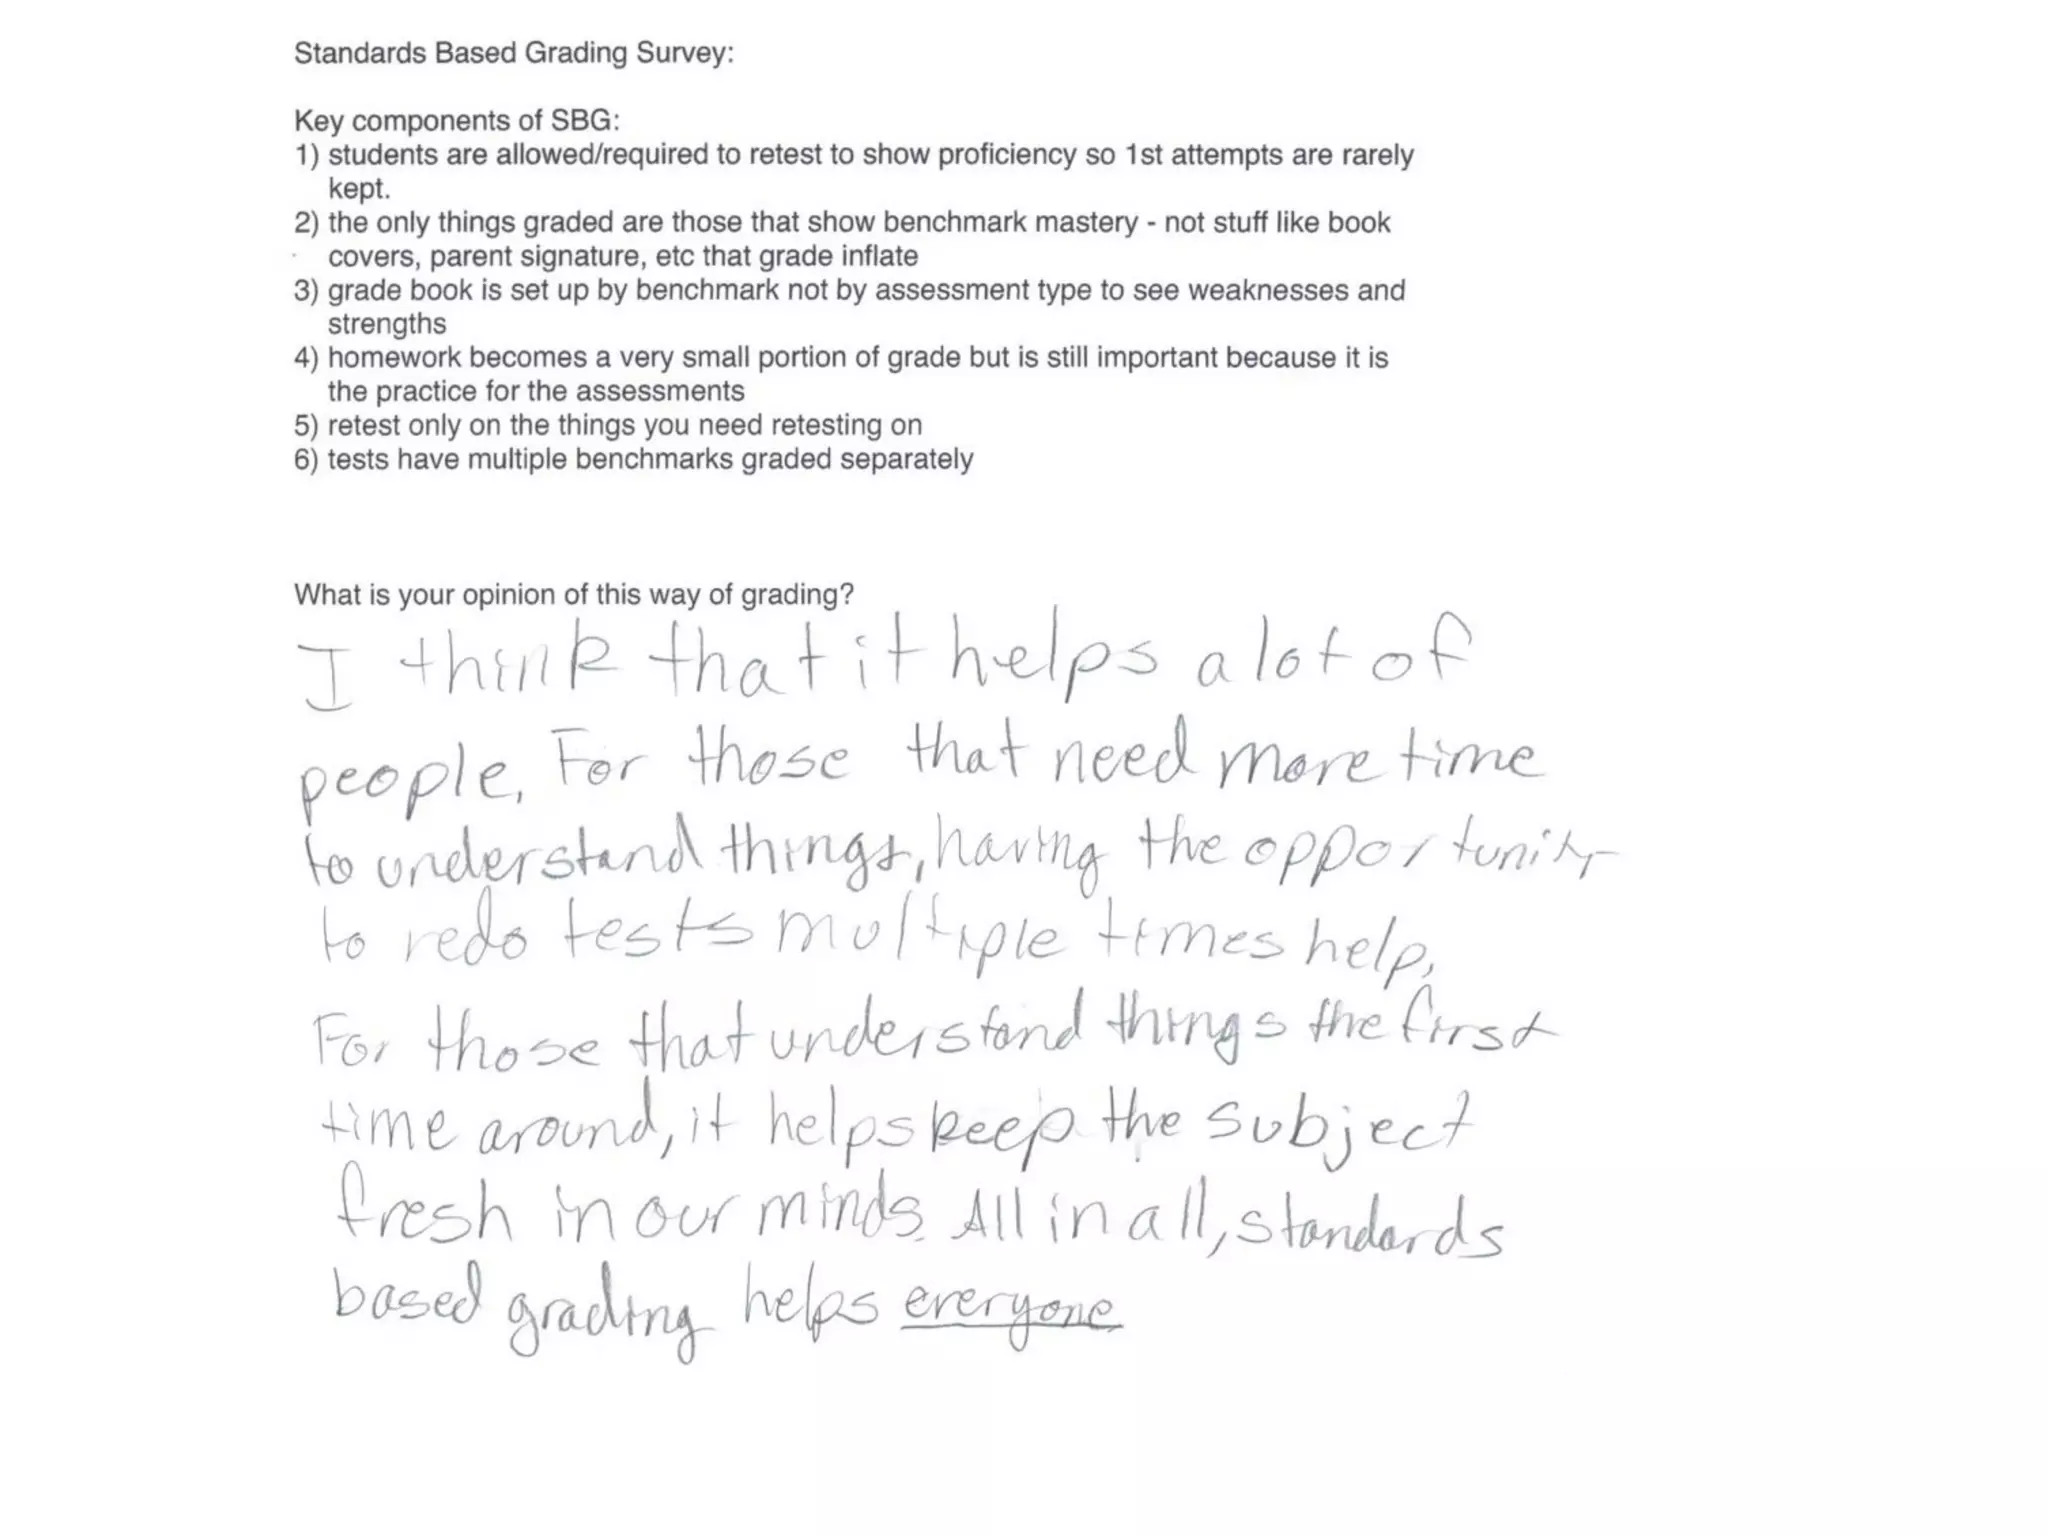 Standards Based Grading Survey:
Key components of SBG:
1) students are allowed/required to retest to show proficiency so 1st attempts are rarely
kept.
2) the only things graded are those that show benchmark mastery - not stuff like book
covers, parent signature, etc that grade inflate
3) grade book is set up by benchmark not by assessment type to see weaknesses and
strengths
4) homework becomes a very small portion of grade but is still important because it is
the practice for the assessments
5) retest only on the things you need retesting on
6) tests have multiple benchmarks graded separately
What is your opinion of this way of grading?
I think that it helps a lot of
people. For those that need more time
to understand things, having the opportunity
to redo tests multiple times help.
For those that understand things the first
time around, it helps keep the subject
fresh in our minds. All in all, standards
based grading helps everyone.